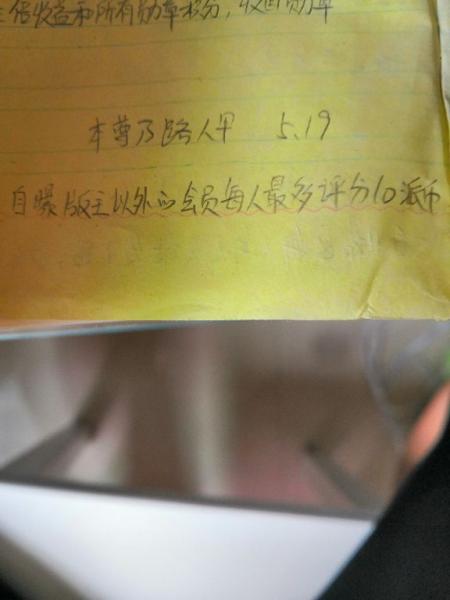 倍收益和所有勋章积分,收回勋章
本尊乃路人甲 5.19
自曝版主以外的会员每人最多评分10派币